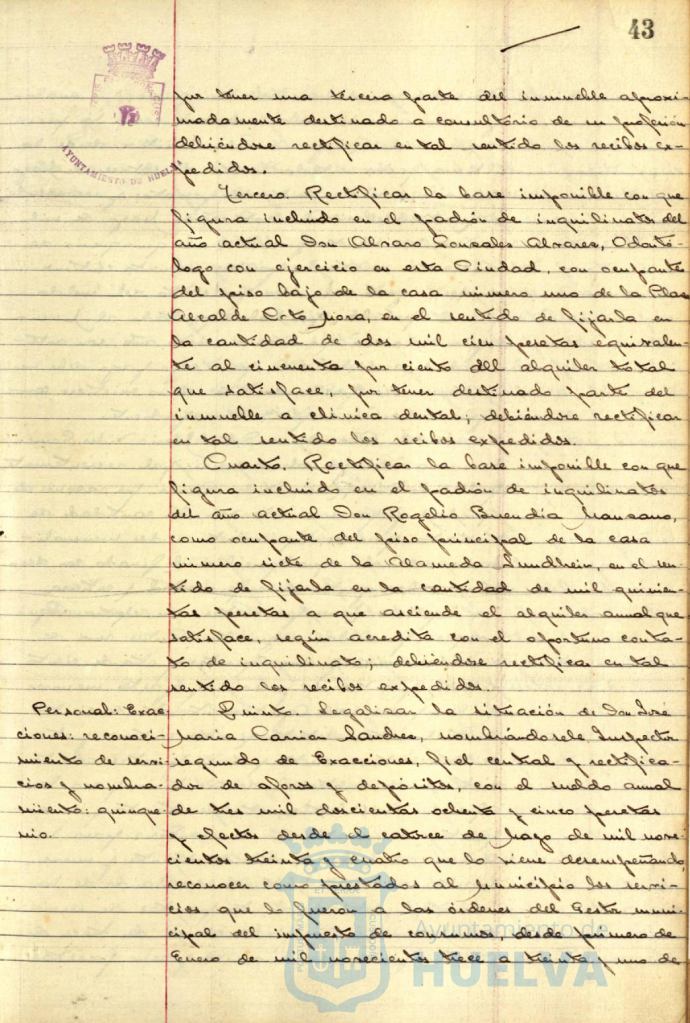 43
AYUNTAMIENTO DE HUELVA
por tener una tercera parte del inmueble aproxi-
madamente destinado a consultorio de su profesión
debiéndose rectificar en tal sentido los recibos ex-
pedidos.
Tercero. Rectificar la base imponible con que
figura incluido en el padrón de inquilinatos del
año actual Don Alvaro Gonzales Alvares, Odontó-
logo con ejercicio en esta Ciudad, con ocupante
del piso bajo de la casa número uno de la Plaza
Alcalde Coto Mora, en el sentido de fijarla en
la cantidad de dos mil cien pesetas equivalen-
te al cincuenta por ciento del alquiler total
que satisface, por tener destinado parte del
inmueble a clínica dental; debiéndose rectificar
en tal sentido los recibos expedidos.
Cuarto. Rectificar la base imponible con que
figura incluido en el padrón de inquilinatos
del año actual Don Rogelio Buendía Manzano,
como ocupante del piso principal de la casa
número siete de la Alameda Sundheim, en el sen-
tido de fijarla en la cantidad de mil quinien-
tas pesetas a que asciende el alquiler anual que
satisface, según acredita con el oportuno contra-
to de inquilinato; debiéndose rectificar en tal
sentido los recibos expedidos.
Personal: Exac-
ciones: reconoci-
miento de servi-
cios y nombra-
miento: quinque-
nio.
Quinto. Legalizar la situación de Don José
Maria Carrion Sandres, nombrándosele Inspector
segundo de Exacciones, fiel central y rectifica-
dor de aforos y depósitos, con el sueldo anual
de tres mil doscientas ochenta y cinco pesetas
y efectos desde el catorce de Mayo de mil nove-
cientos treinta y cuatro que lo viene desempeñando,
reconocer como prestados al Municipio los servi-
cios que lo fueron a las órdenes del Gestor muni-
cipal del impuesto de consumos, desde primero de
Enero de mil novecientos trece a treinta y uno de
Ayuntamiento de
HUELVA